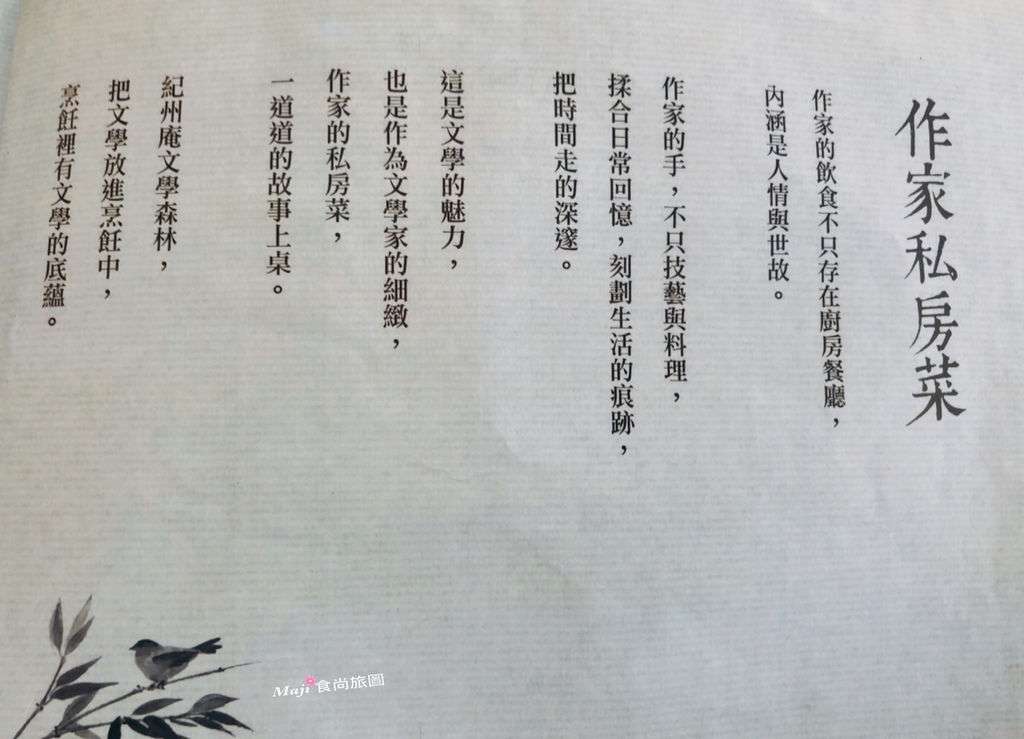 作家私房菜
作家的飲食不只存在廚房餐廳，
內涵是人情與世故。
作家的手，不只技藝與料理，
揉合日常回憶，刻劃生活的痕跡，
把時間走的深邃。
這是文學的魅力，
也是作為文學家的細緻，
作家的私房菜，
一道道的故事上桌。
紀州庵文學森林，
把文學放進烹飪中，
烹飪裡有文學的底蘊。
Maji食尚旅圖